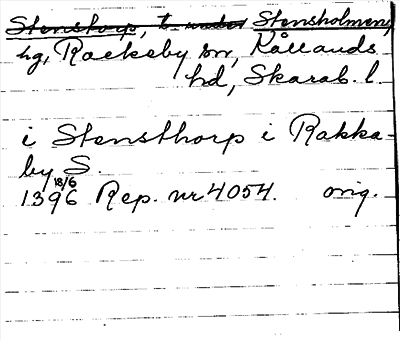 Stenstorp, t. under Stensholmen,
hg, Rackeby sn, Kållands
hd, Skarab. l.
i Stensthorp i Rakka-
by S.
1396 18/6 Rep. nr 4054. orig.